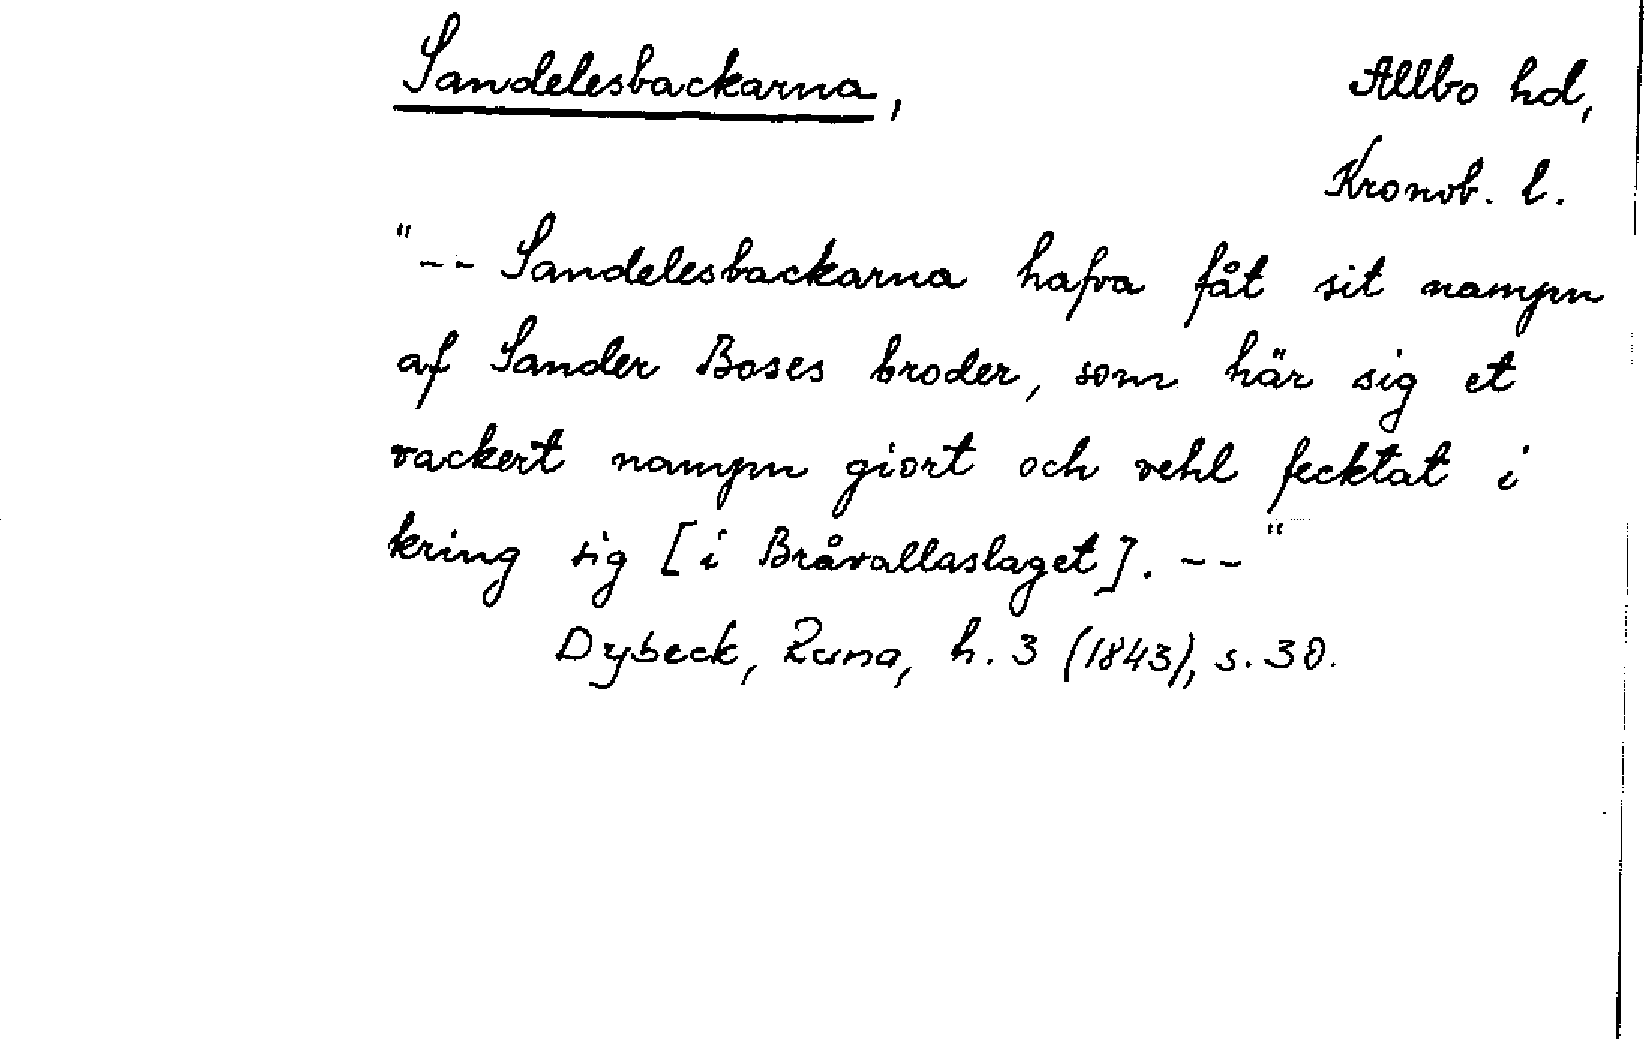 Sandelesbackarna, Allbo hd,
Kronob. l.
"-- Sandelesbackarna hafva fåt sit nampn
af Sander Boses broder, som här sig et
vackert nampn giort och vehl fecktat i
kring sig [i Bråvallaslaget]. --"
Dybeck, Runa, h. 3 (1843), s. 30.